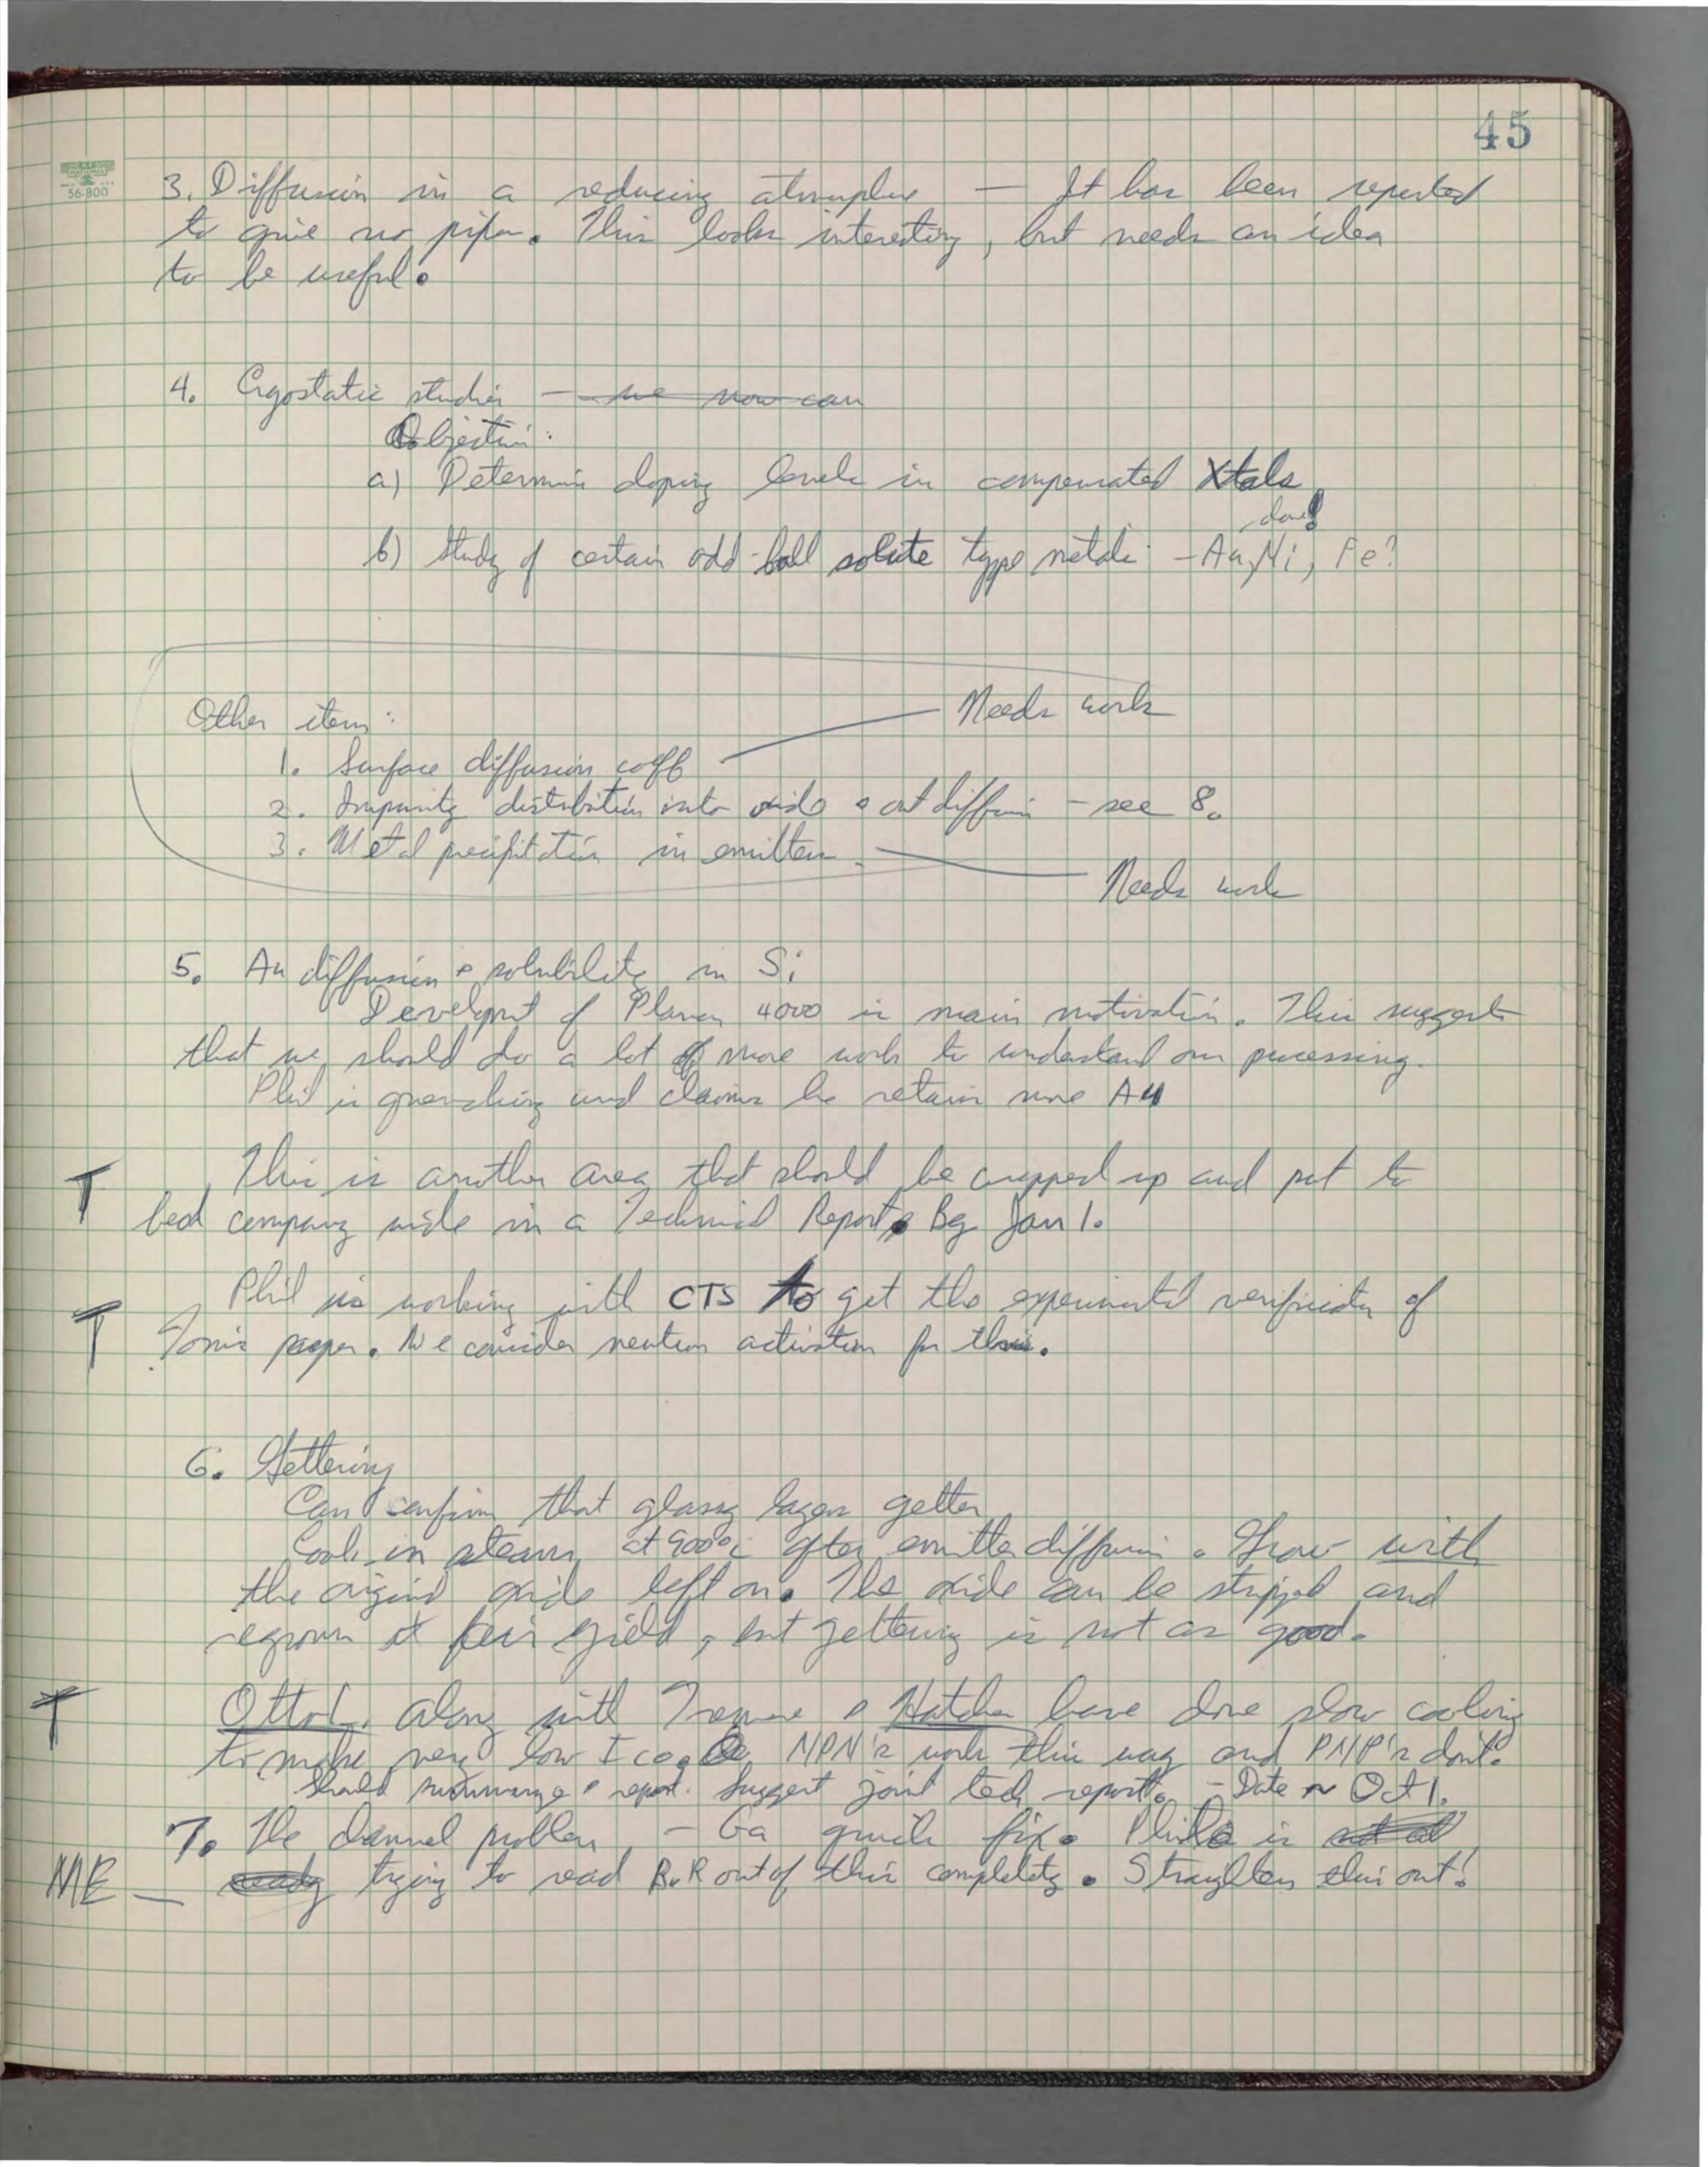 45
56-800
3. Diffusion in a reducing atmosphere — It has been reported
to give no pipes. This looks interesting, but needs an idea
to be useful.
4. Cryostatic studies — we now can
Objective:
a) Determine doping levels in compensated Xtals
done!
b) Study of certain odd-ball solute type metals - Au, Ni, Fe?
Needs work
Other items:
1. Surface diffusion coeff
2. Impurity distribution into oxide & out diffusion - see 8.
3. Metal precipitation in emitters
Needs work
5. Au diffusion & solubility in Si
Developmt of Planar 4000 is main motivation. This suggests
that we should do a lot of more work to understand our processing.
Phil is quenching and claims he retains more Au
T This is another area that should be wrapped up and put to
bed company wide in a Technical Report. By Jan 1.
T Phil is working with CTS to get the experimental verification of
Tom's paper. We consider neutron activation for this.
6. Gettering
Can confirm that glassy layers getter
Cook in steam at 900°C after emitter diffusion. Grow with
the original oxide left on. The oxide can be stripped and
regrown at fair yield, but gettering is not as good.
T Otto L. along with & Hatcher have done slow cooling
to make very low Ico. NPN's work this way and PNP's don't.
Should summarize & report. Suggest joint tech report. - Date ~ Oct 1.
7. The channel problem - Ga quick fix. Phil is not at
ME — ready trying to read B.R out of this completely. Straighten this out!